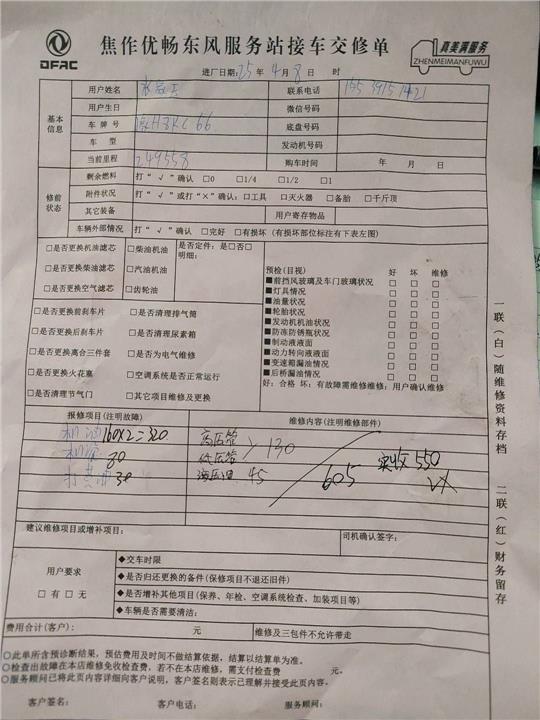 DFAC
焦作优畅东风服务站接车交修单
真美满服务
ZHENMEIMANFUWU
进厂日期: 25 年 4 月 8 日 时
基本信息
用户姓名 联系电话 15539151421
用户生日 微信号码
车牌号 豫H3KC66 底盘号码
车型 发动机号码
当前里程 249558 购车时间 年 月 日
修前状态
剩余燃料 打“√”确认 □0 □1/4 □1/2 □1
附件状况 打“√”或打“×”确认: □工具 □灭火器 □备胎 □千斤顶
其它装备 用户寄存物品
车辆外部情况 打“√”确认 □完好 □有损坏(有损坏部位标注有下表左图)
□是否更换机油滤芯 □柴油机油 是否定件: 是□否□
明细:
□是否更换柴油滤芯 □汽油机油
□是否更换空气滤芯 □齿轮油
□是否更换前刹车片 □是否清理排气筒
□是否更换后刹车片 □是否清理尿素箱
□是否更换离合三件套 □是否为电气维修
□是否更换火花塞 □空调系统是否正常运行
□是否清理节气门 □其它项目维修及更换
预检(目视) 好 坏 维修
■前挡风玻璃及车门玻璃状况 □ □ □
■灯具情况 □ □ □
■油量状况 □ □ □
■轮胎状况 □ □ □
■发动机机油状况 □ □ □
■防冻防锈瓶状况 □ □ □
■制动液液面 □ □ □
■动力转向液液面 □ □ □
■变速箱漏油情况 □ □ □
■后桥漏油情况 □ □ □
好: 合格 坏: 有故障需维修维修: 用户确认维修
报修项目(注明故障) 维修内容(注明维修部件)
机油 160×2=320 高压管 > 130
机滤 80 低压管
打黄油 30 液压油 45
605 实收 550
建议维修项目或增补项目: 司机确认签字:
用户要求
□有 □无
◆交车时限
◆是否归还更换的备件(保修项目不退还旧件)
◆是否增补其他项目(保养、年检、空调系统检查、加装项目等)
◆车辆是否需要清洁:
费用合计(客户): 元 维修及三包件不允许带走
○此单所含预诊断结果, 预估费用及时间不做结算依据, 结算以结算单为准。
○检查出故障在本店维修免收检查费, 若不在本店维修, 需支付检查费 元。
○服务顾问已将此页内容详细向客户说明, 客户签名则表示已理解并接受此页内容。
客户签名: 客户电话: 服务顾问:
一联(白)随维修资料存档 二联(红)财务留存